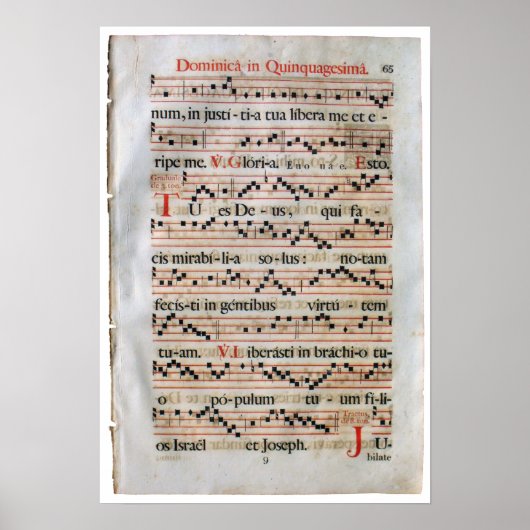 Dominicâ in Quinquagesimâ. 65
num, in justí-ti-a tua libera me et e-
ripe me. V. Glóri-a. E u o u a e. Esto.
Graduale
TU es De-us, qui fa-
cis mirabí-li-a so-lus: no-tam
fecís-ti in géntibus virtú-tem
tu-am. V. Liberásti in bráchi-o tu-
o pópulum tu-um fí-li-
Tractus,
os Israël et Joseph. JU-
9 bilate